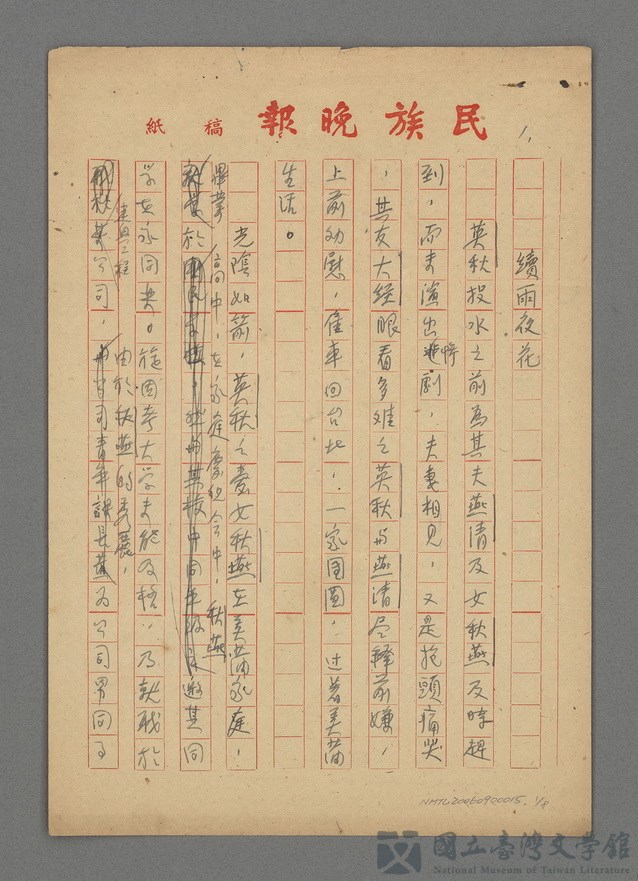 民族晚報 稿紙
1,
續雨夜花
英秋投水之前為其夫燕清及女秋燕及時趕
到,而未演出悲劇,夫妻相見,又是抱頭痛哭
,其友大經眼看多难之英秋与燕清尽釋前嫌,
上前劝慰,僱車回台北,一家团圓,过着美滿
生活。
光陰如箭,英秋之養女秋燕在美滿家庭,
畢業 高中,在家庭慶祝会中,秋燕邀其同
学在永同來。旋因考大学未能及格,乃就職於
建興工程
公司,由於秋燕的秀麗,為公司男同事
NMTL20060900015. 1/8
國立臺灣文學館
National Museum of Taiwan Literature